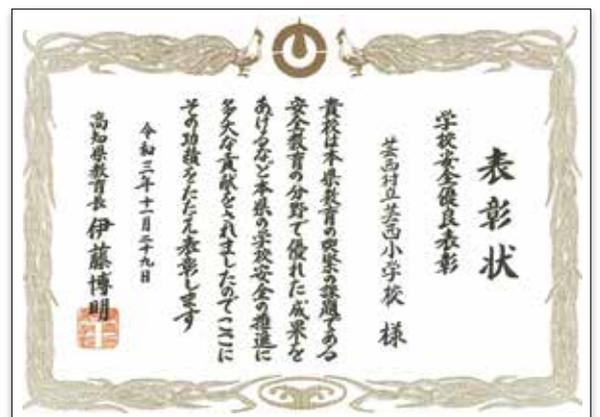 表彰状
学校安全優良表彰
芸西村立芸西小学校 様
貴校は本県教育の喫緊の課題である
安全教育の分野で優れた成果を
あげるなど本県の学校安全の推進に
多大な貢献をされましたのでここに
その功績をたたえ表彰します
令和三年十一月二十九日
高知県教育長 伊藤博明